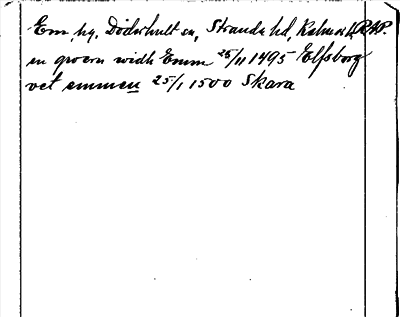 Em, hg. Döderhult sn, Stranda hd, Kalm. l. RAP.
en qwern widh Emm 26/11 1495 Elfsborg
vet emmen 25/1 1500 Skara